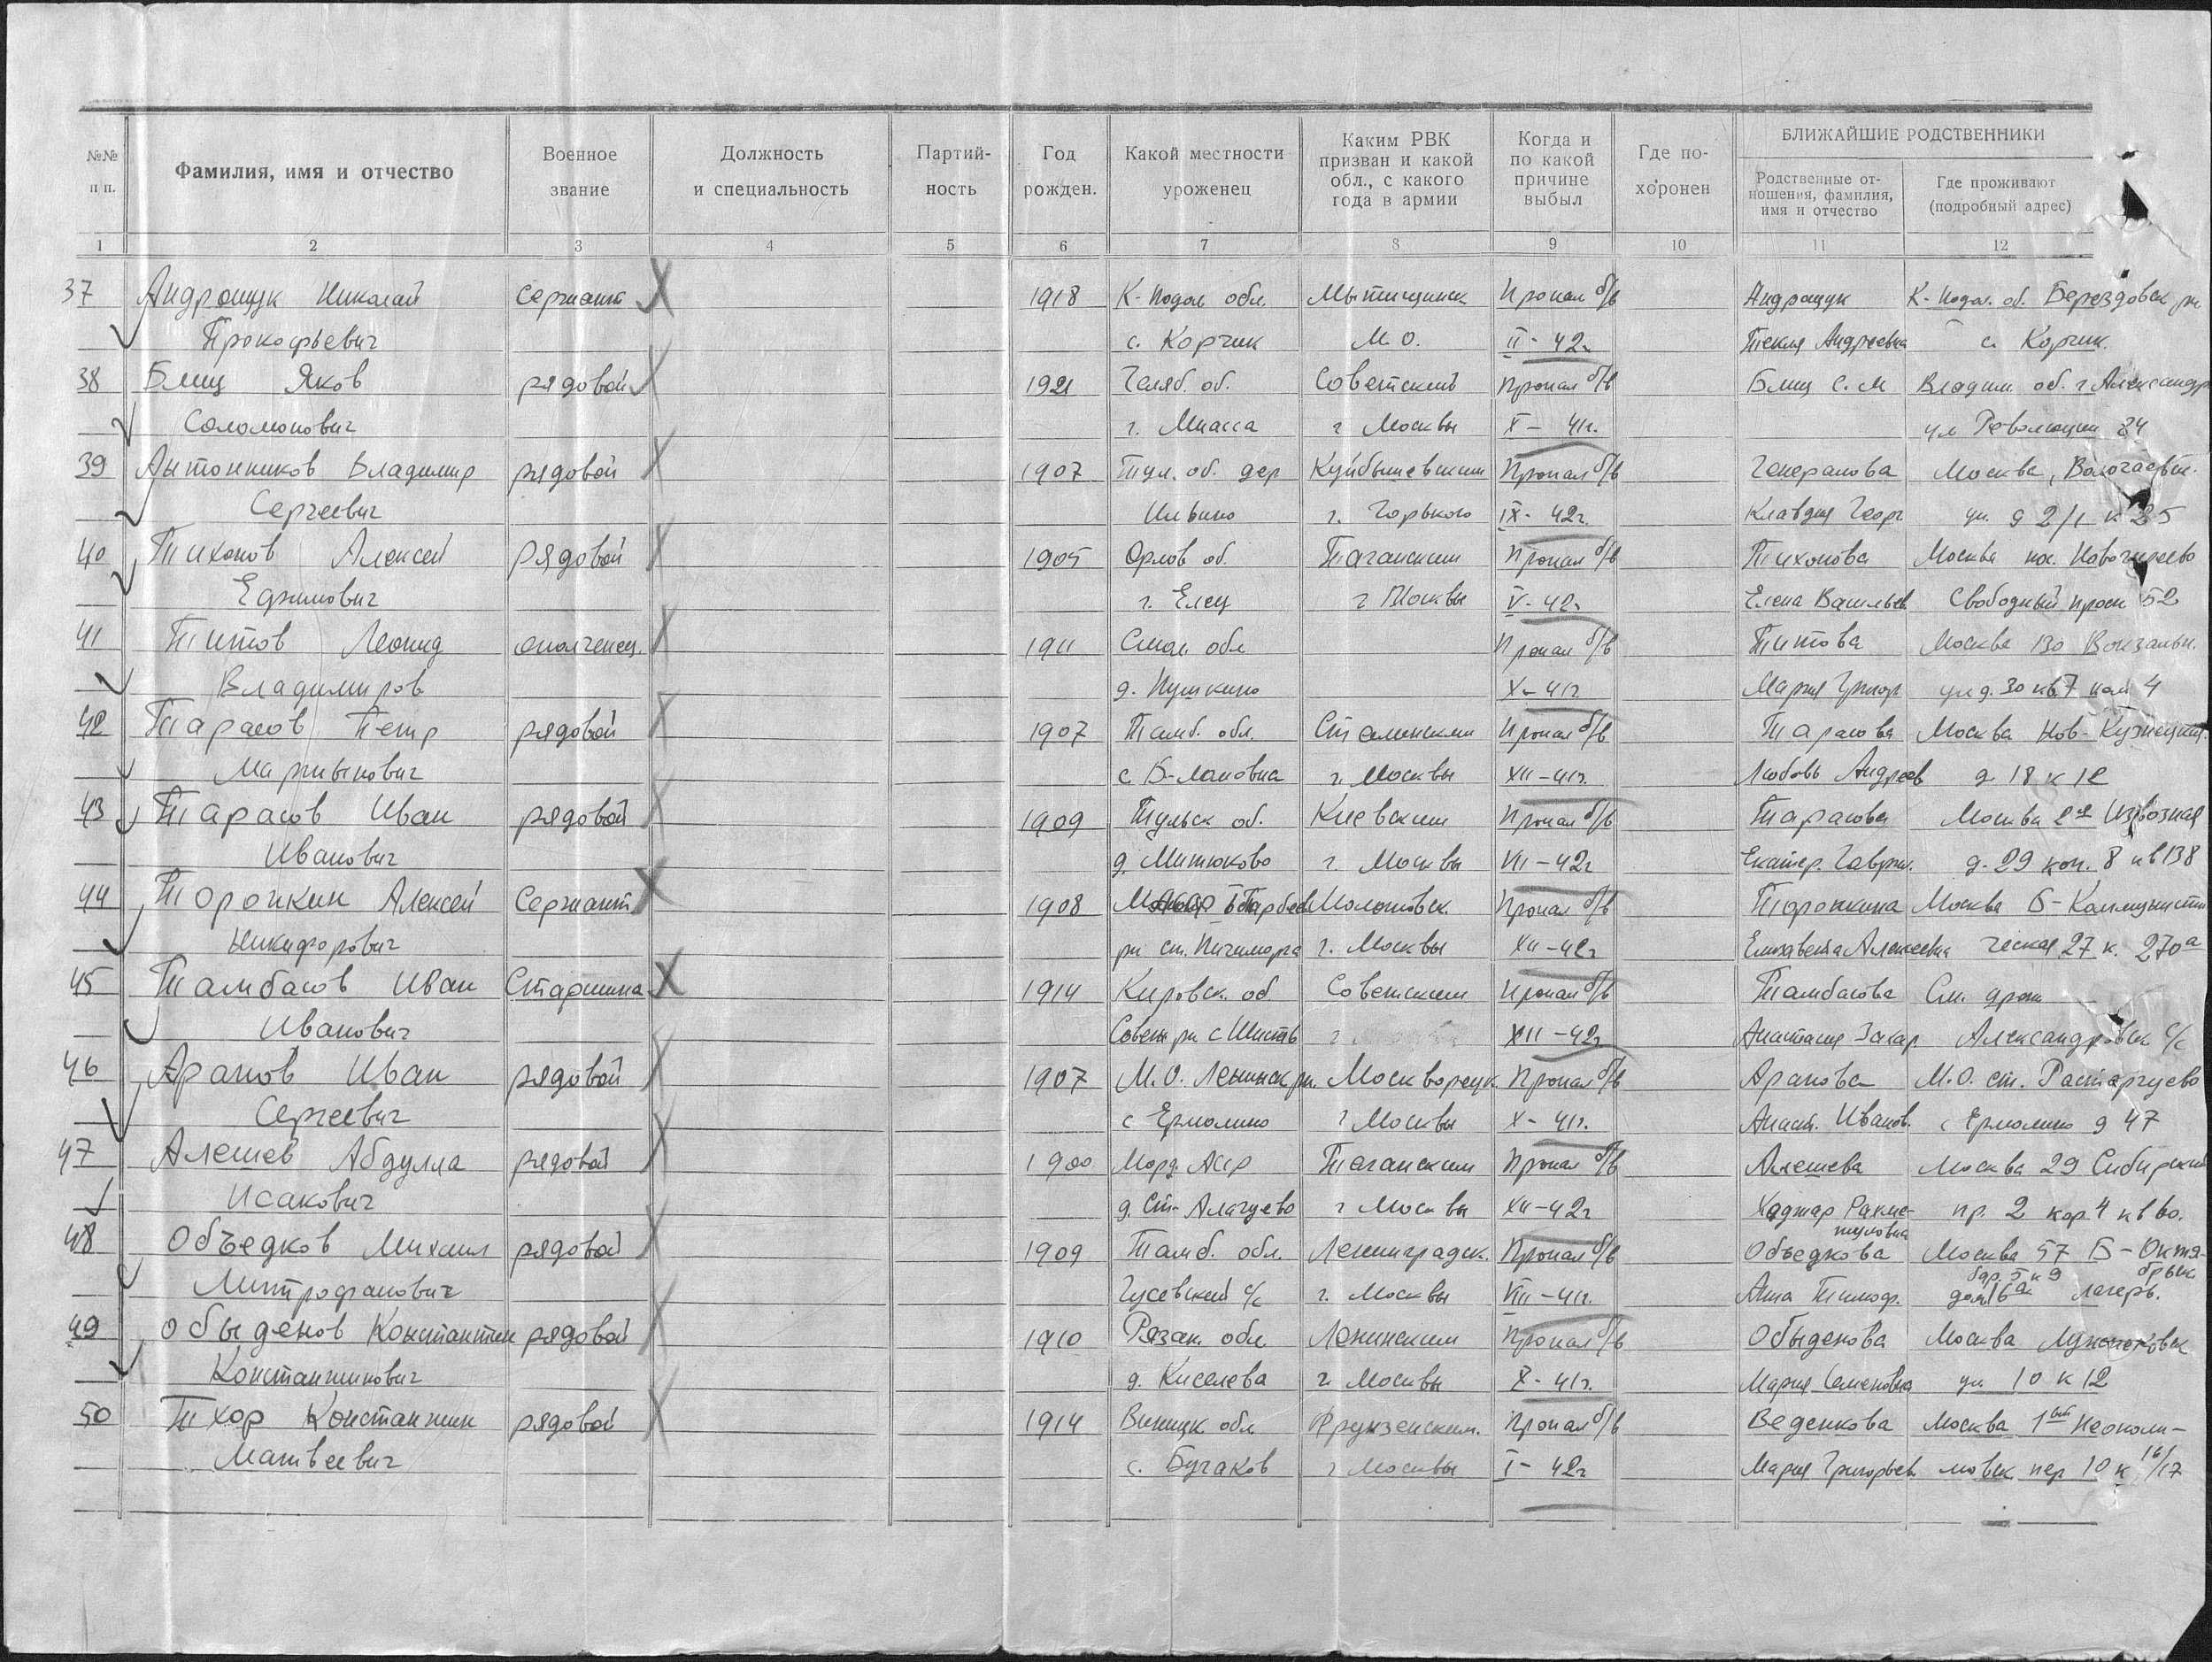 №№ п п. Фамилия, имя и отчество Военное звание Должность и специальность Партий- ность Год рожден. Какой местности уроженец Каким РВК призван и какой обл., с какого года в армии Когда и по какой причине выбыл Где по- хоронен БЛИЖАЙШИЕ РОДСТВЕННИКИ
Родственные от- ношения, фамилия, имя и отчество Где проживают (подробный адрес)
1 2 3 4 5 6 7 8 9 10 11 12
37 Андрощук Николай сержант 1918 К-Подол обл. Мытищинск Пропал б/в Андрощук К-Подол. об. Берездовск рн
Прокофьевич с. Корчик М.О. II-42г Текля Андреевна с. Корчик.
38 Блиц Яков рядовой 1921 Челяб. об. Советский Пропал б/в Блиц С.М Владим. об. г Александр
Соломонович г. Миасса г Москвы X-41г. ул Революции 84
39 Антонников Владимир рядовой 1907 Тул. об. дер Куйбышевским Пропал б/в Генералова Москва, Волочаевск.
Сергеевич Ильино г. Горького IX-42г. Клавдия Георг ул. д 2/1 к 25
40 Тихонов Алексей рядовой 1905 Орлов об. Таганским Пропал б/в Тихонова Москва пос. Новогиреево
Ефимович г. Елец г Москвы V-42г Елена Васильев Свободный просп 52
41 Титов Леонид ополченец. 1911 Смол. обл Пропал б/в Титова Москва 130 Вокзальн.
Владимиров д. Пушкино X-41г Мария Григор ул д. 30 кв 7 ком 4
42 Тарасов Петр рядовой 1907 Тамб. обл. Сталинским Пропал б/в Тарасова Москва Нов-Кузнецкая.
Мартынович с Б-Лановиа г. Москвы XII-41г. Любовь Андреев д 18 к 12
43 Тарасов Иван рядовой 1909 Тульск об. Киевским Пропал б/в Тарасова Москва 2я Извозная
Иванович д. Митюково г. Москвы VII-42г Екатер. Гаврил. д. 29 кор. 8 кв 138
44 Торочкин Алексей Сержант 1908 Молотовск. Пропал б/в Торочкина Москва Б-Коммунисти
Никифорович рн ст. Пичиморга г. Москвы XII-42г Елизавета Алексеевна ческая 27 к. 270а
45 Тамбасов Иван Старшина 1914 Кировск. об Советским Пропал б/в Тамбасова См.
Иванович Совет рн с г XII-42г Анастасия Захар Александровск с/с
46 Арапов Иван рядовой 1907 М.О. Ленинск рн. Москворецк. Пропал б/в Арапова М.О. ст. Расторгуево
Сергеевич с Ермолино г Москвы X-41г. Анаст. Иванов. с Ермолино д 47
47 Алешев Абдулла рядовой 1900 Морд АССР Таганским Пропал б/в Алешева Москва 29 Сибирский
Исакович д. Ст-Алагуево г Москвы XII-42г Хаджар пр. 2 кор 4 кв 60.
48 Объедков Михаил рядовой 1909 Тамб. обл. Ленинградск. Пропал б/в Объедкова Москва 57 Б-Октя-
Митрофанович Гусевский с/с г. Москвы VIII-41г. Анна Тимоф. дом 6а бар. 5 к 9 брьск. лагерь.
49 Обыденов Константин рядовой 1910 Рязан. обл Ленинским Пропал б/в Обыденова Москва Лужнековск
Константинович д. Киселева г. Москвы X-41г. Мария Семеновна ул 10 к 12
50 Тхор Константин рядовой 1914 Виницк обл. Фрунзенским. Пропал б/в Веденкова Москва 1ый Неополи-
Матвеевич с. Бучаков г Москвы I-42г Мария Григорьев мовск пер 10 к 16/17